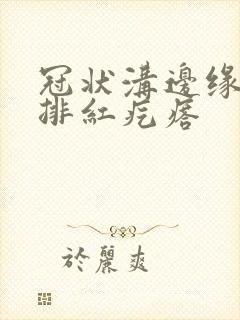 冠状溝邊缘
排紅疙瘩
於麗爽